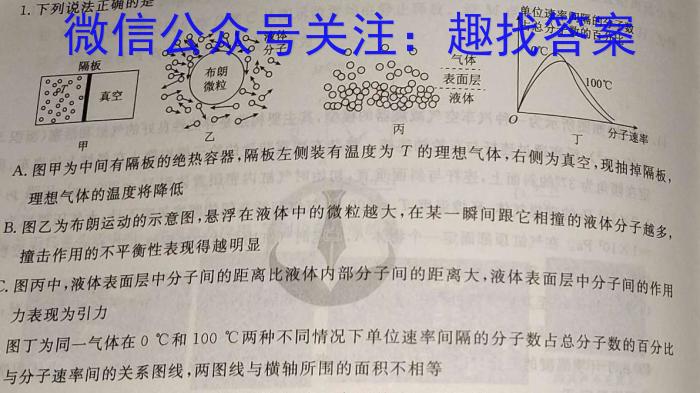 1. 下列说法正确的是
微信公众号关注：趣找答案
单位速率间隔的分子数
占总分子数的百分比
隔板
真空
甲
布朗
微粒
液体
分子
乙
气体
表面层
液体
丙
100℃
分子速率
丁
A. 图甲为中间有隔板的绝热容器,隔板左侧装有温度为 T 的理想气体,右侧为真空,现抽掉隔板,
理想气体的温度将降低
B. 图乙为布朗运动的示意图,悬浮在液体中的微粒越大,在某一瞬间跟它相撞的液体分子越多,
撞击作用的不平衡性表现得越明显
C. 图丙中,液体表面层中分子间的距离比液体内部分子间的距离大,液体表面层中分子间的作用
力表现为引力
图丁为同一气体在 0 ℃和 100 ℃两种不同情况下单位速率间隔的分子数占总分子数的百分比
与分子速率间的关系图线,两图线与横轴所围的面积不相等